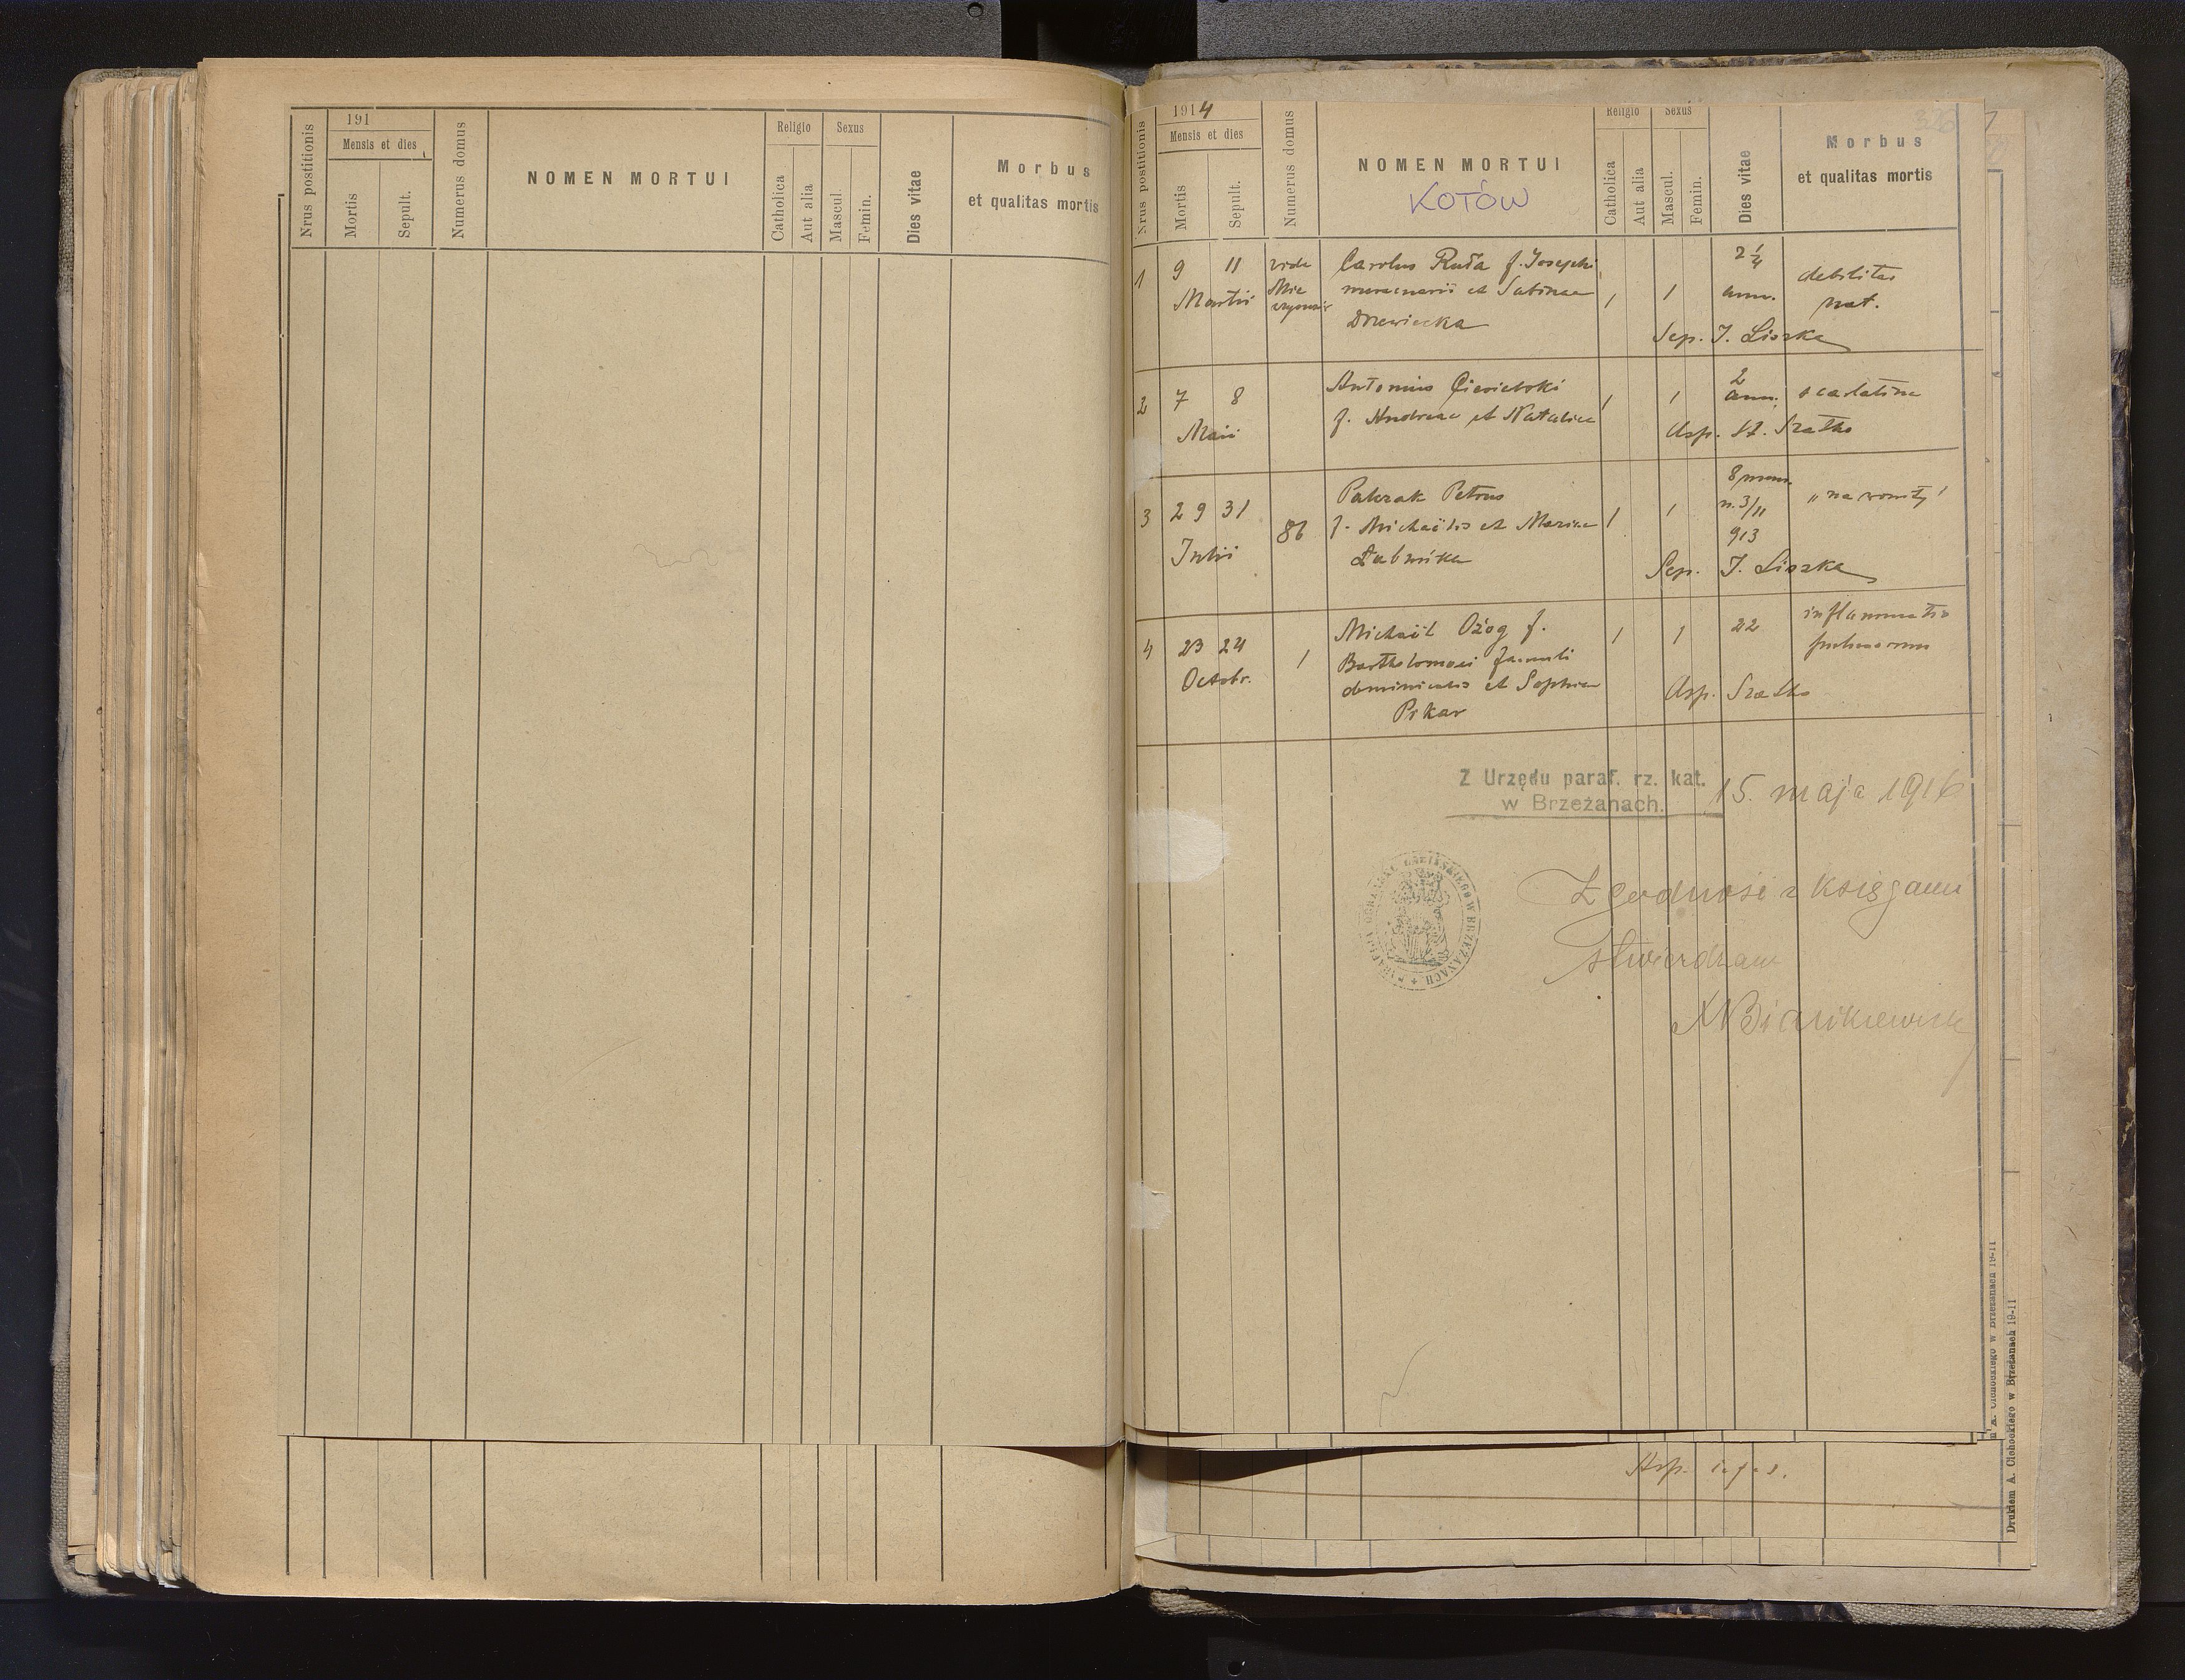 191
Mensis et dies
Nrus postitionis
Mortis
Sepult.
Numerus domus
NOMEN MORTUI
Religio
Catholica
Aut alia
Sexus
Mascul.
Femin.
Dies vitae
Morbus
et qualitas mortis
1914
Mensis et dies
Nrus postitionis
Mortis
Sepult.
Numerus domus
NOMEN MORTUI
KOTÓW
Religio
Catholica
Aut alia
Sexus
Mascul.
Femin.
Dies vitae
Morbus
et qualitas mortis
1
9 11
Martii
vide
Carolus Ruda f. Josephi
et Sabinae
Drewiecka
1
1
2 1/4
ann.
debilitas
nat.
Sep. J. Liszka
2
7 8
Maii
Antonius Ciesielski
f. Andreae et Nataliae
1
1
2
ann.
scarlatina
Asp. St. Szatko
3
29 31
Julii
86
Petrus
f. Michaëlis et Mariae
1
1
8 mens.
n. 3/11
913
Sep. J. Liszka
4
23 24
Octobr.
1
Michaël Ożog f.
Bartholomaei famuli
dominicalis et Sophiae
Pikar
1
1
22
inflammatio
pulmonum
Asp. Szatko
Z Urzędu paraf. rz. kat.
w Brzeżanach.
15. maja 1916
PARAFIA OBRZĄDKU ŁACIŃSKIEGO W BRZEŻANACH
Zgodność z księgami
stwierdzam
Asp. i. q. s.
Drukiem A. Cichockiego w Brzeżanach 19-11